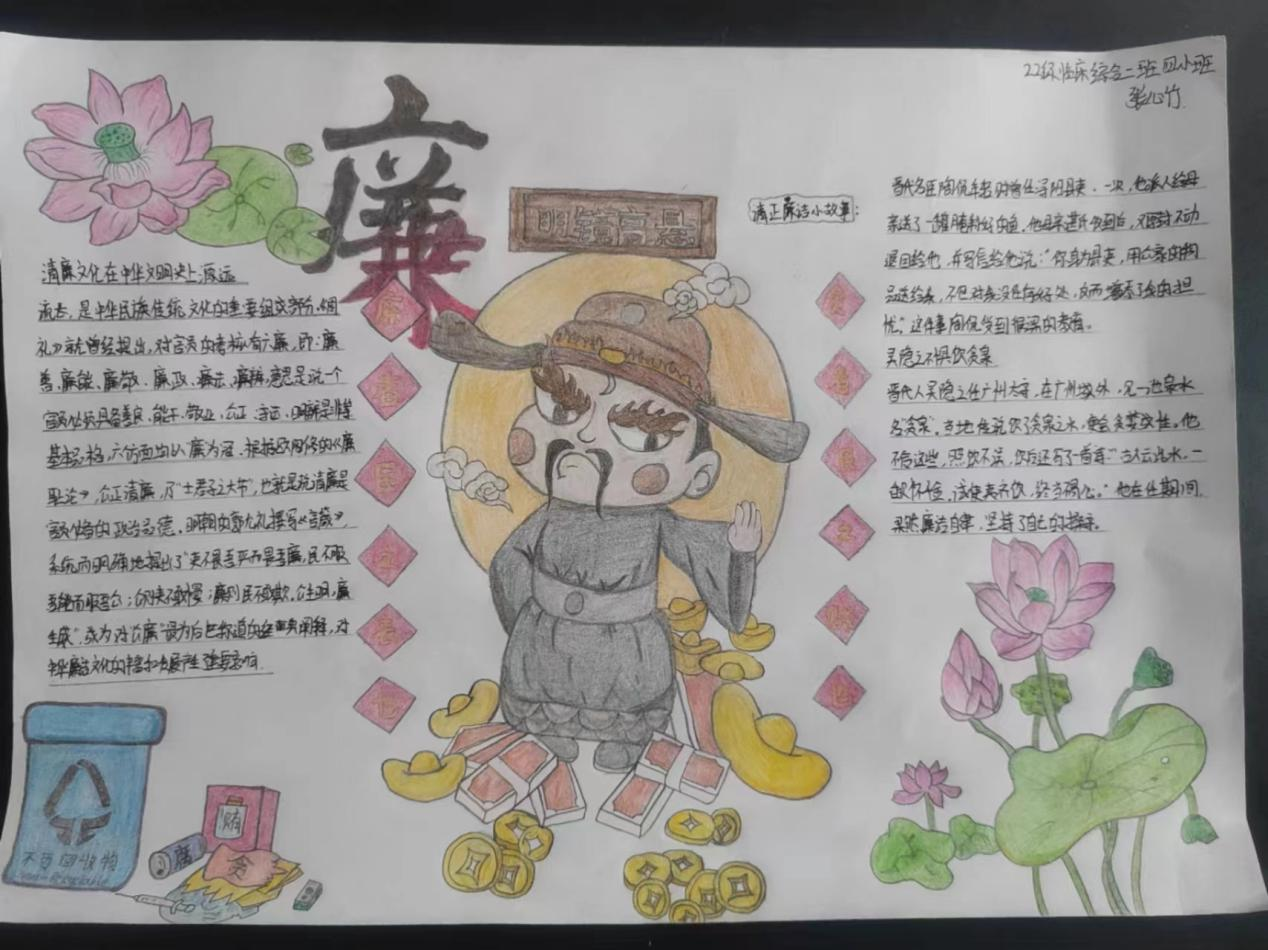 22级临床综合二班四小班
张心竹
廉
明镜高悬
清廉文化在中华文明史上源远
流长,是中华民族传统文化的重要组成部分,《周
礼》就曾经提出,对官吏的考核有六廉,即:廉
善、廉能、廉敬、廉政、廉法、廉辨,意思是说一个
官员必须具备善良、能干、敬业、公正、守法、明辨是非等
基本品格,六方面均以廉为冠。根据欧阳修的《廉
耻论》,公正清廉,乃"士君子之大节",也就是说清廉是
官员必备的政治品德。明朝的郭允礼撰写《官箴》,
系统而明确地提出了"吏不畏吾严而畏吾廉,民不服
吾能而服吾公;公则吏不敢慢;廉则民不敢欺。公生明,廉
生威",成为对"廉"
廉
者
民
之
表
也
清正廉洁小故事:
贪
者
民
之
贼
也
晋代名臣陶侃年轻时曾任浔阳县吏。一次,他派人给母
亲送了一罐腌制好的鱼。他母亲湛氏收到后,又原封不动
退回给他,并写信给他说:"你身为县吏,用公家的物
品送给我,不但对我没任何好处,反而增添了我的担
忧。"这件事陶侃受到很深的教育。
吴隐之不惧饮贪泉
晋代人吴隐之任广州太守,在广州城外,见一池泉水
名"贪泉"。当地传说饮了贪泉之水,便会贪婪成性。他
不信这些,照饮不误,饮后还写了一首诗:"古人云此水,一
歃怀千金,试使夷齐饮,终当不易心。"他在任期间,
果然廉洁自律,坚持了自己的操守。
不可回收物
Non-Recyclable
贿
腐
贪